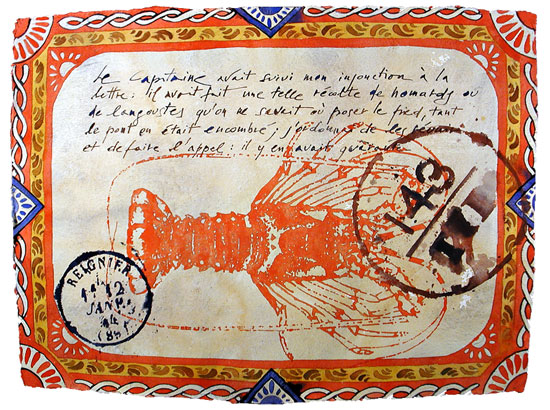 Le Capitaine avait suivi mon injonction à la
lettre : il avait fait une telle récolte de homards ou
de langoustes qu'on ne savait où poser le pied, tant
le pont en était encombré ; j'ordonnai de les
et de faire l'appel : il y en avait quarante
143
REIGNIER
12
JANV